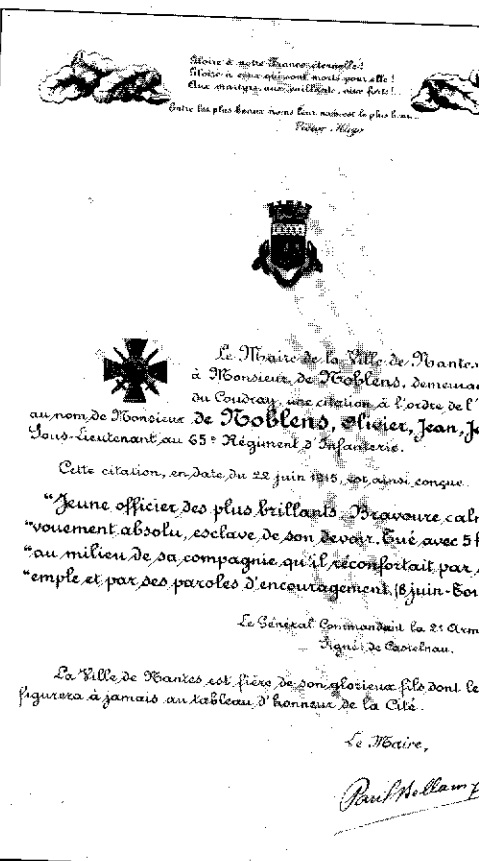 Gloire à notre France éternelle!
Gloire à ceux qui sont morts pour elle!
Aux martyrs, aux vaillants, aux forts!..
Entre les plus beaux noms leur nom est le plus beau...
Victor-Hugo
Le Maire de la Ville de Nantes
à Monsieur de Noblens, demeura
du Coudray, une citation à l'ordre de l'
au nom de Monsieur de Noblens, Olivier, Jean, J
Sous-Lieutenant au 65e Régiment d'Infanterie.
Cette citation, en date du 22 juin 1915, est ainsi conçue
"Jeune officier des plus brillants. Bravoure calm
"vouement absolu, esclave de son devoir. Tué avec 5
"au milieu de sa compagnie qu'il réconfortait par
"emple et par ses paroles d'encouragement, (8 juin-
Le Général Commandant la 2e Arm
Signé: de Castelnau.
La Ville de Nantes est fière de son glorieux fils dont le
figurera à jamais au tableau d'honneur de la Cité.
Le Maire,
Paul Bellamy